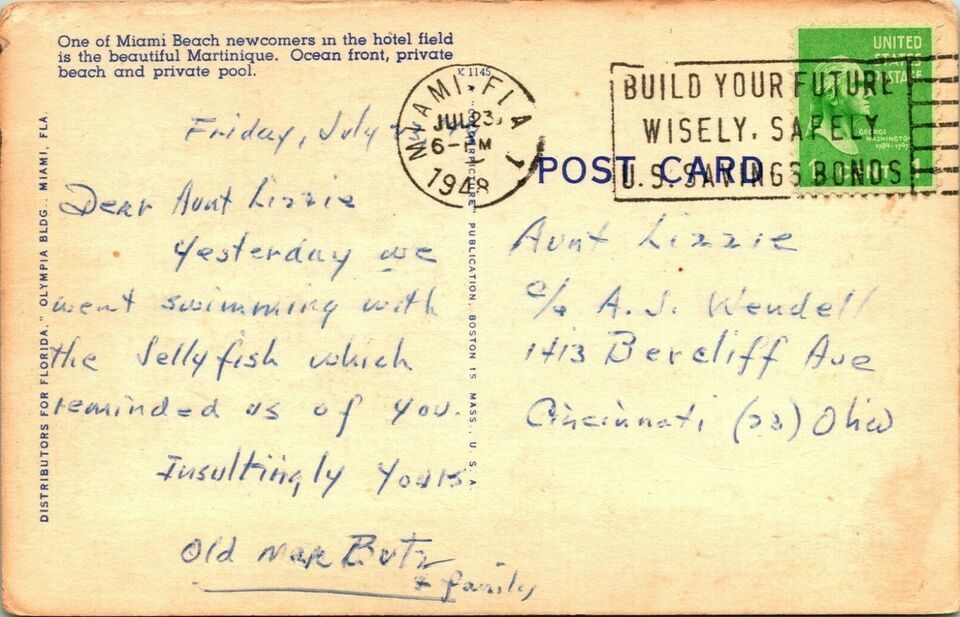 One of Miami Beach newcomers in the hotel field
is the beautiful Martinique. Ocean front, private
beach and private pool.
K 1145
MIAMI, FLA
JUL 23
6-PM
1948
BUILD YOUR FUTURE
WISELY, SAFELY
U.S. SAVINGS BONDS
UNITED
STATES
POSTAGE
GEORGE
WASHINGTON
1789-1797
POST CARD
DISTRIBUTORS FOR FLORIDA," OLYMPIA BLDG., MIAMI, FLA.
PUBLICATION, BOSTON 15, MASS., U. S. A.
Friday, July
Dear Aunt Lizzie
Yesterday we
went swimming with
the Jellyfish which
reminded us of you.
Insultingly Yours
Old Butz
& family
Aunt Lizzie
c/o A. J. Wendell
1413 Bercliff Ave
Cincinnati Ohio